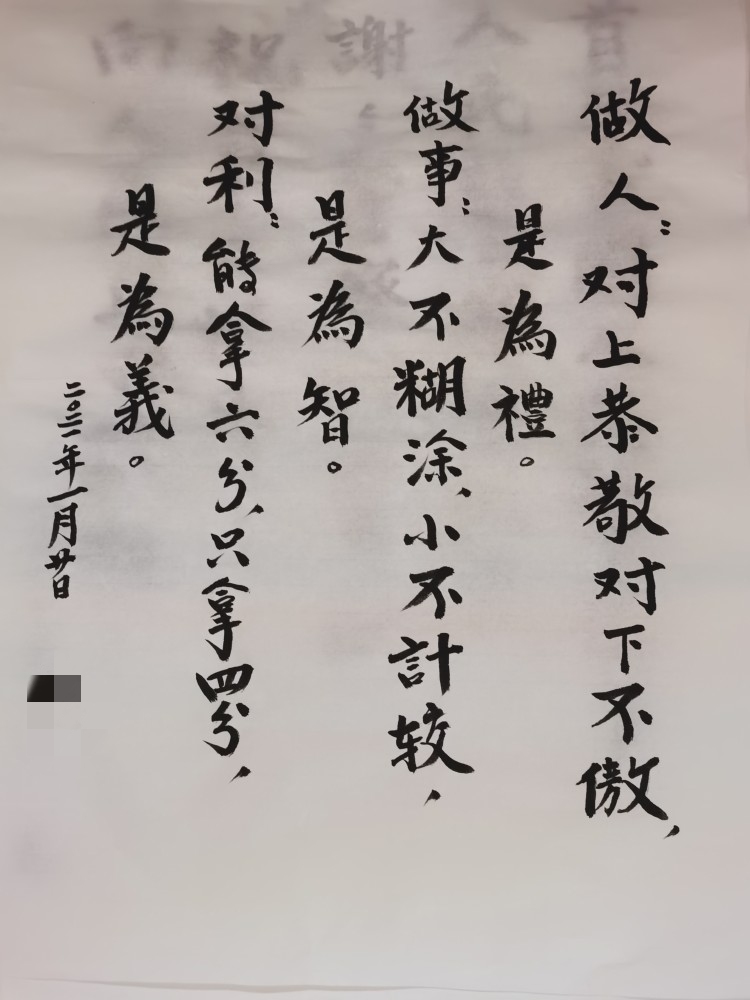 做人：对上恭敬对下不傲，
是為禮。
做事：大不糊涂，小不計较，
是為智。
对利：能拿六分，只拿四分，
是為義。
二〇二一年一月廿日